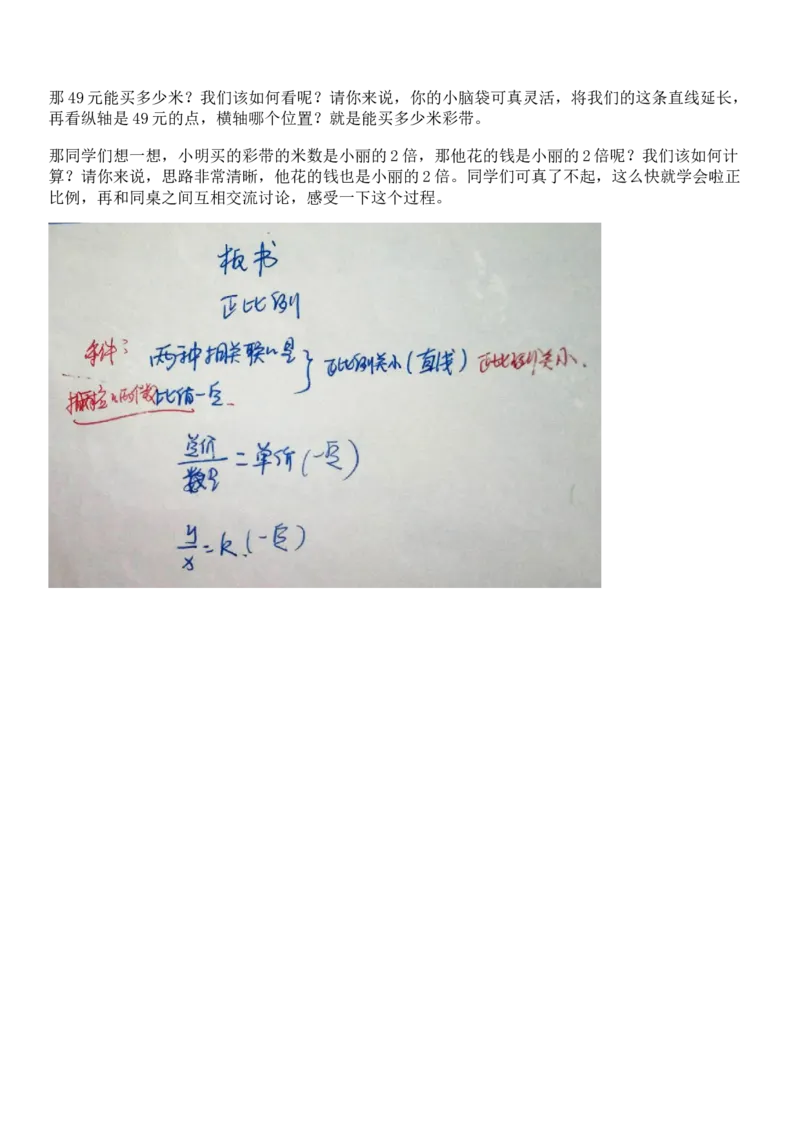 那 49 元能买多少米？我们该如何看呢？请你来说，你的小脑袋可真灵活，将我们的这条直线延长，
再看纵轴是 49 元的点，横轴哪个位置？就是能买多少米彩带。
那同学们想一想，小明买的彩带的米数是小丽的 2 倍，那他花的钱是小丽的 2 倍呢？我们该如何计
算？请你来说，思路非常清晰，他花的钱也是小丽的 2 倍。同学们可真了不起，这么快就学会啦正
比例，再和同桌之间互相交流讨论，感受一下这个过程。
板书
正比例
条件： 两种相关联的量 } 正比例关系（直线） 正比例关系.
两个数比值一定.
总价
数量 = 单价（一定）
y
x = k（一定）